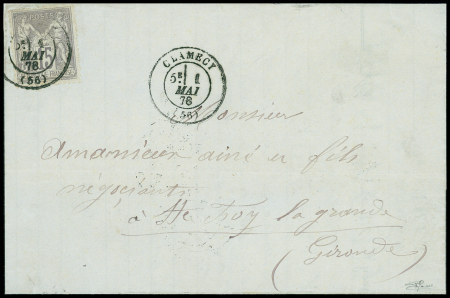 POSTES
15
5E 1
MAI
78
(56)
CLAMECY
5E 1
MAI
78
(56)
Monsieur
Amanieux ainé et fils
négociants
à Ste Foy la grande
(Gironde)